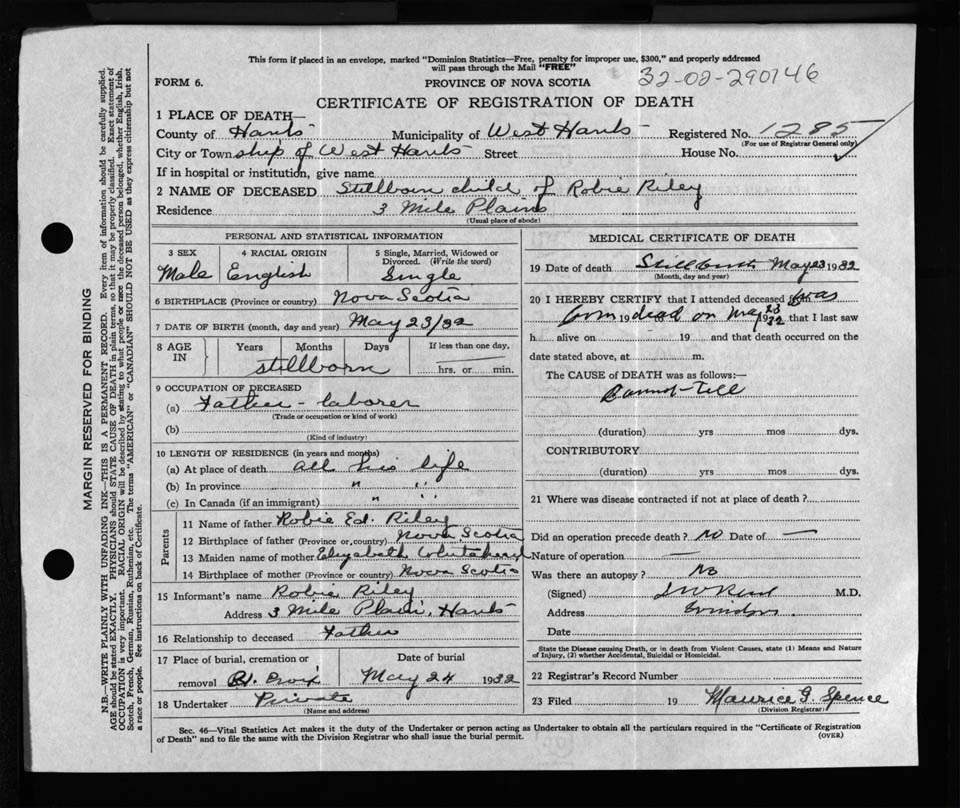 This form if placed in an envelope, marked "Dominion Statistics—Free, penalty for improper use, $300," and properly addressed
will pass through the Mail "FREE"
32-02-290746
FORM 6.
PROVINCE OF NOVA SCOTIA
CERTIFICATE OF REGISTRATION OF DEATH
1 PLACE OF DEATH—
County of Hants Municipality of West Hants Registered No. 1285
(For use of Registrar General only)
City or Town ship of West Hants Street House No.
If in hospital or institution, give name
2 NAME OF DECEASED Stillborn child of Robie Riley
Residence 3 Mile Plains
(Usual place of abode)
PERSONAL AND STATISTICAL INFORMATION
3 SEX 4 RACIAL ORIGIN 5 Single, Married, Widowed or
Divorced. (Write the word)
Male English Single
6 BIRTHPLACE (Province or country) Nova Scotia
7 DATE OF BIRTH (month, day and year) May 23/32
8 AGE IN Years Months Days If less than one day,
stillborn hrs. or min.
9 OCCUPATION OF DECEASED
(a) Father - laborer
(Trade or occupation or kind of work)
(b)
(Kind of industry)
10 LENGTH OF RESIDENCE (in years and months)
(a) At place of death all his life
(b) In province " "
(c) In Canada (if an immigrant) " "
Parents
11 Name of father Robie Ed. Riley
12 Birthplace of father (Province or country) Nova Scotia
13 Maiden name of mother Elizabeth
14 Birthplace of mother (Province or country) Nova Scotia
15 Informant's name Robie Riley
Address 3 Mile Plain, Hants
16 Relationship to deceased Father
17 Place of burial, cremation or Date of burial
removal May 24 1932
18 Undertaker Private
(Name and address)
MEDICAL CERTIFICATE OF DEATH
19 Date of death Stillbirth May 23 1932
(Month, day and year)
20 I HEREBY CERTIFY that I attended deceased was
born 19 dead on May 23 1932 that I last saw
h alive on 19 and that death occurred on the
date stated above, at m.
The CAUSE of DEATH was as follows:—
Cannot tell
(duration) yrs mos dys.
CONTRIBUTORY
(duration) yrs mos dys.
21 Where was disease contracted if not at place of death?
Did an operation precede death? No Date of —
Nature of operation —
Was there an autopsy? No
(Signed) M.D.
Address Windsor
Date
State the Disease causing Death, or in death from Violent Causes, state (1) Means and Nature
of Injury, (2) whether Accidental, Suicidal or Homicidal.
22 Registrar's Record Number
23 Filed 19 Maurice G. Spence
(Division Registrar)
Sec. 46—Vital Statistics Act makes it the duty of the Undertaker or person acting as Undertaker to obtain all the particulars required in the "Certificate of Registration
of Death" and to file the same with the Division Registrar who shall issue the burial permit.
(OVER)
MARGIN RESERVED FOR BINDING
N.B.—WRITE PLAINLY WITH UNFADING INK—THIS IS A PERMANENT RECORD. Every item of information should be carefully supplied.
AGE should be stated EXACTLY. PHYSICIANS should STATE CAUSE OF DEATH in plain terms, so that it may be properly classified. Exact statement of
OCCUPATION is very important. RACIAL ORIGIN will be described by stating to what people or race the deceased person belonged, whether English, Irish,
Scotch, French, German, Russian, Ruthenian, etc. The terms "AMERICAN" or "CANADIAN" SHOULD NOT BE USED as they express citizenship but not
a race or people. See instructions on back of Certificate.